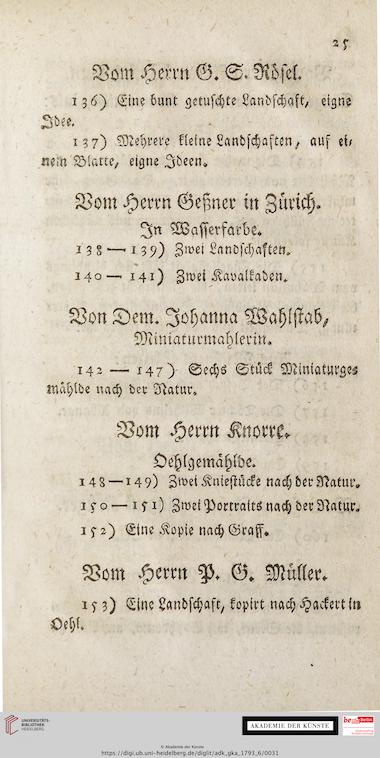 25
Vom Herrn G. S. Rösel.
136) Eine bunt getuschte Landschaft, eigne
Idee.
137) Mehrere kleine Landschaften, auf ei-
nem Blatte, eigne Ideen.
Vom Herrn Geßner in Zürich.
In Wasserfarbe.
138 — 139) Zwei Landschaften.
140 — 141) Zwei Kavalkaden.
Von Dem. Johanna Wahlstab,
Miniaturmahlerin.
142 — 147) Sechs Stück Miniaturge-
mählde nach der Natur.
Vom Herrn Knorre.
Oehlgemählde.
148 — 149) Zwei Kniestücke nach der Natur.
150 — 151) Zwei Portraits nach der Natur.
152) Eine Kopie nach Graff.
Vom Herrn P. G. Müller.
153) Eine Landschaft, kopirt nach Hackert in
Oehl.
UNIVERSITÄTS-
BIBLIOTHEK
HEIDELBERG
AKADEMIE DER KÜNSTE
© Akademie der Künste
https://digi.ub.uni-heidelberg.de/diglit/adk_gka_1793_6/0031